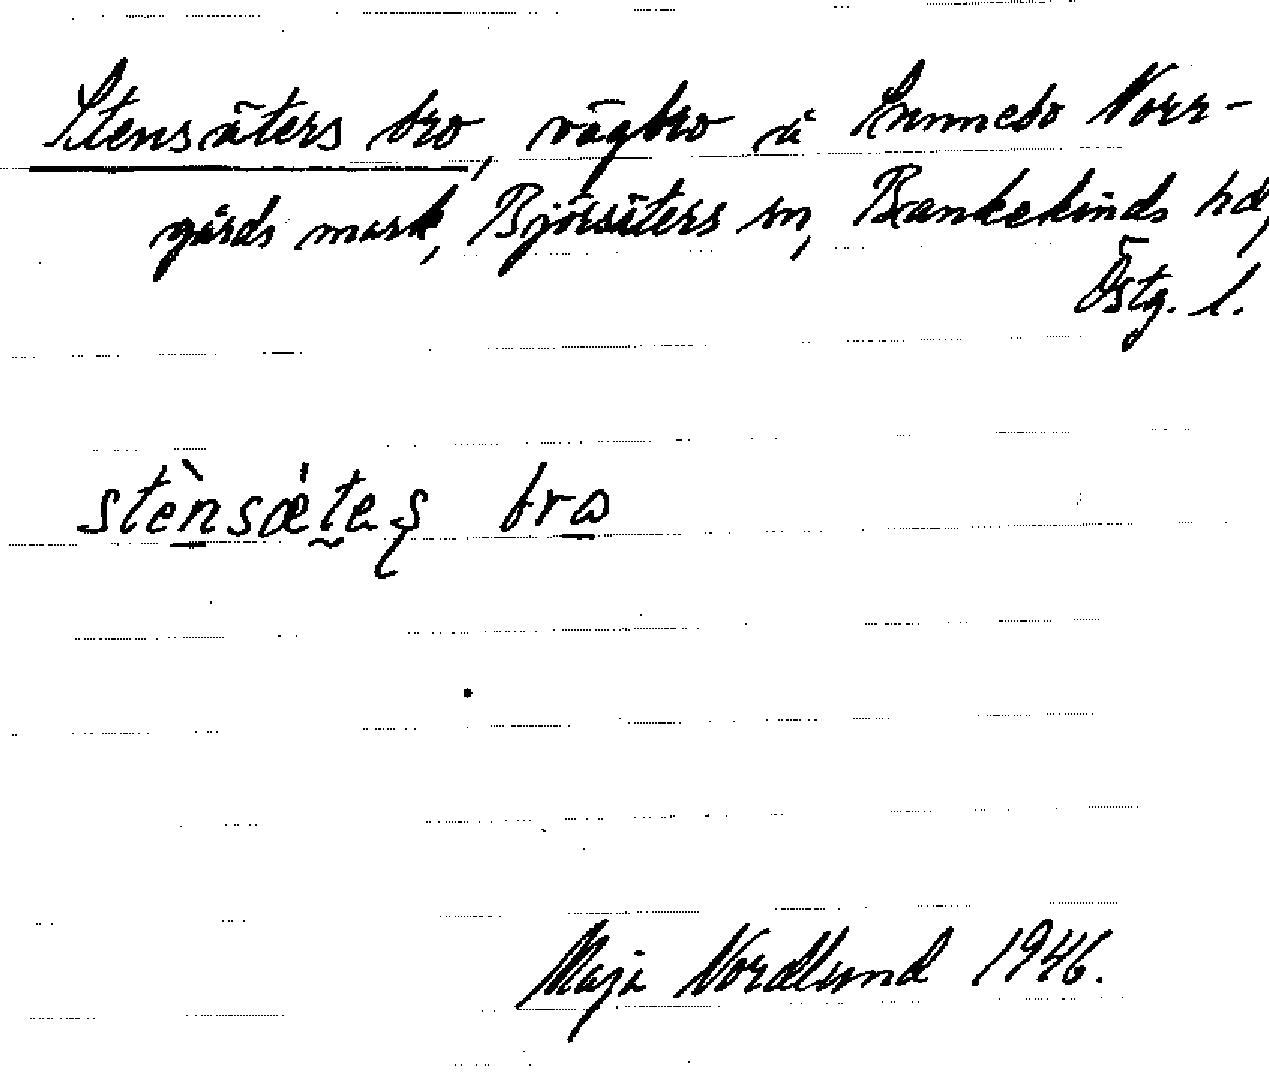 Stensäters bro, vägbro å Emmebo Norr-
gårds mark, Björsäters sn, Bankekinds hd,
Östg. l.
stènsǽteʂ brɷ
Maja Nordlund 1946.